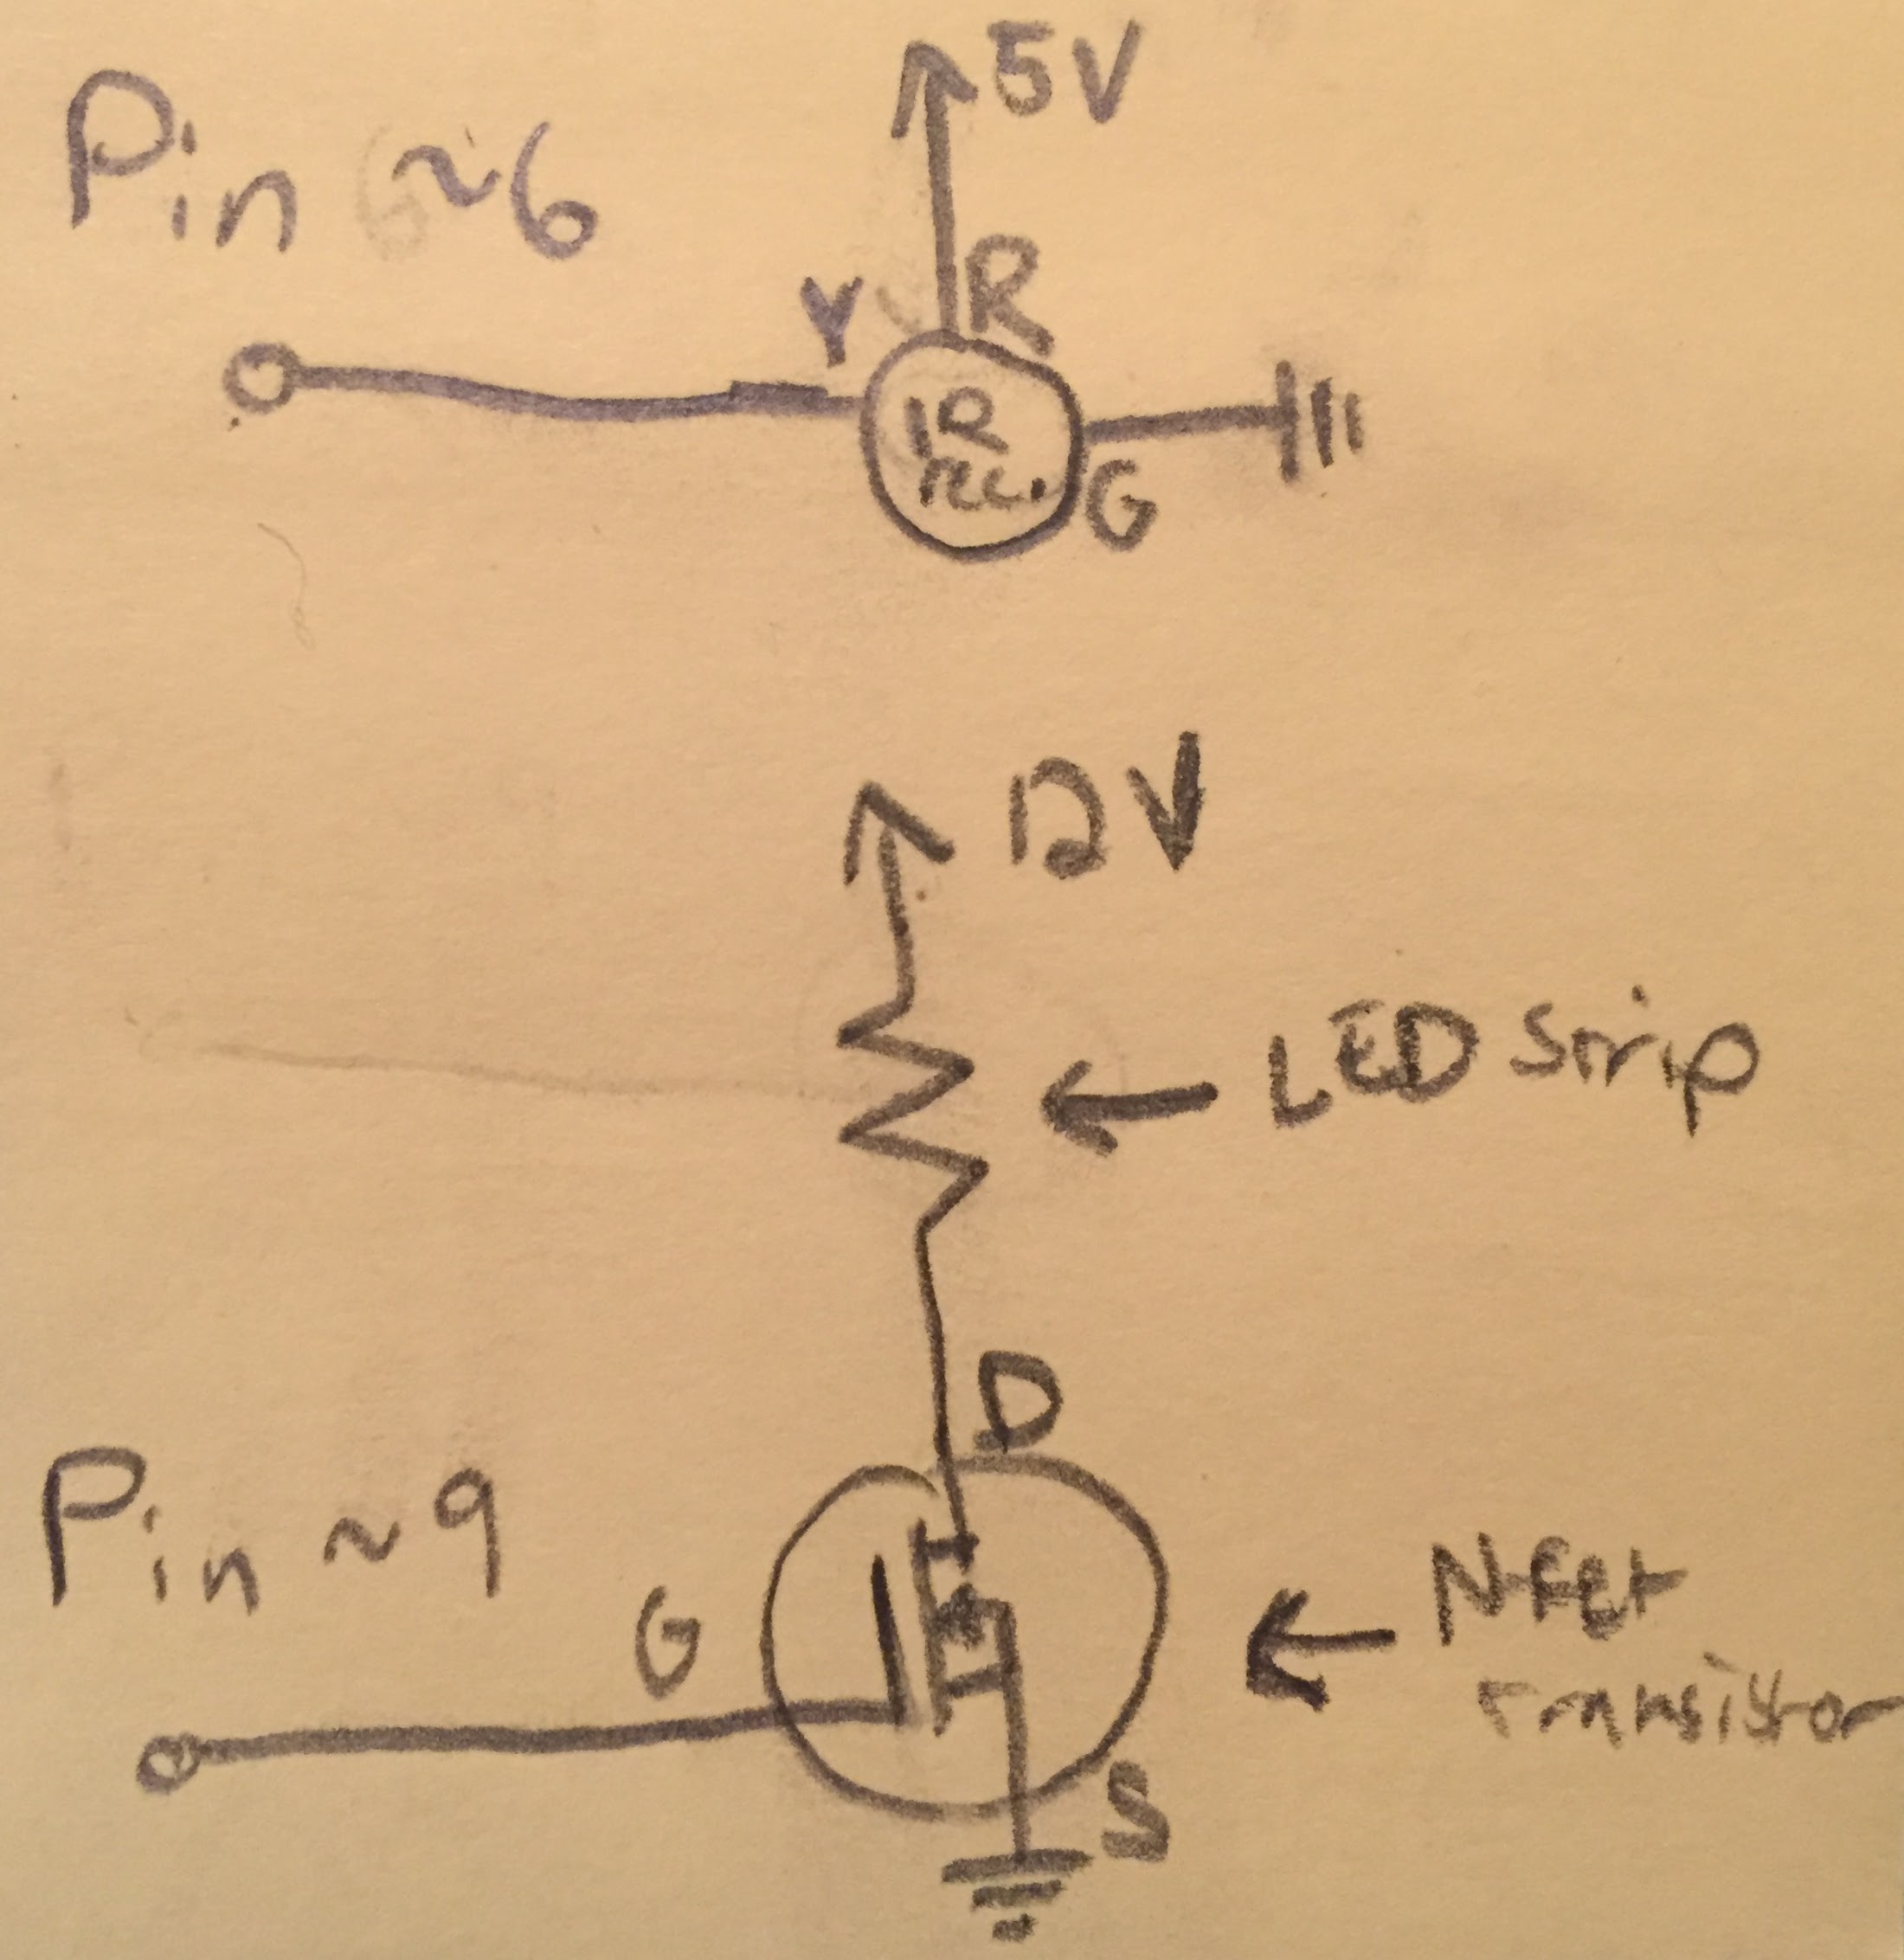 5V
Pin ~6
R
Y
IR
rec.
G
12V
LED Strip
D
Pin ~9
G
N-fet
transistor
S